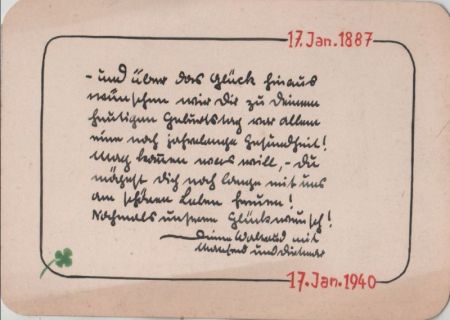 17. Jan. 1887
- und über das Glück hinaus
wünschen wir Dir zu Deinem
heutigen Geburtstag vor allem
eine noch jahrelange Gesundheit!
Mag kommen was will, - Du
mögest Dich noch lange mit uns
am schönen Leben freuen!
Nochmals unseren Glückwunsch!
Deine Waltraud mit
und Dietmar
17. Jan. 1940